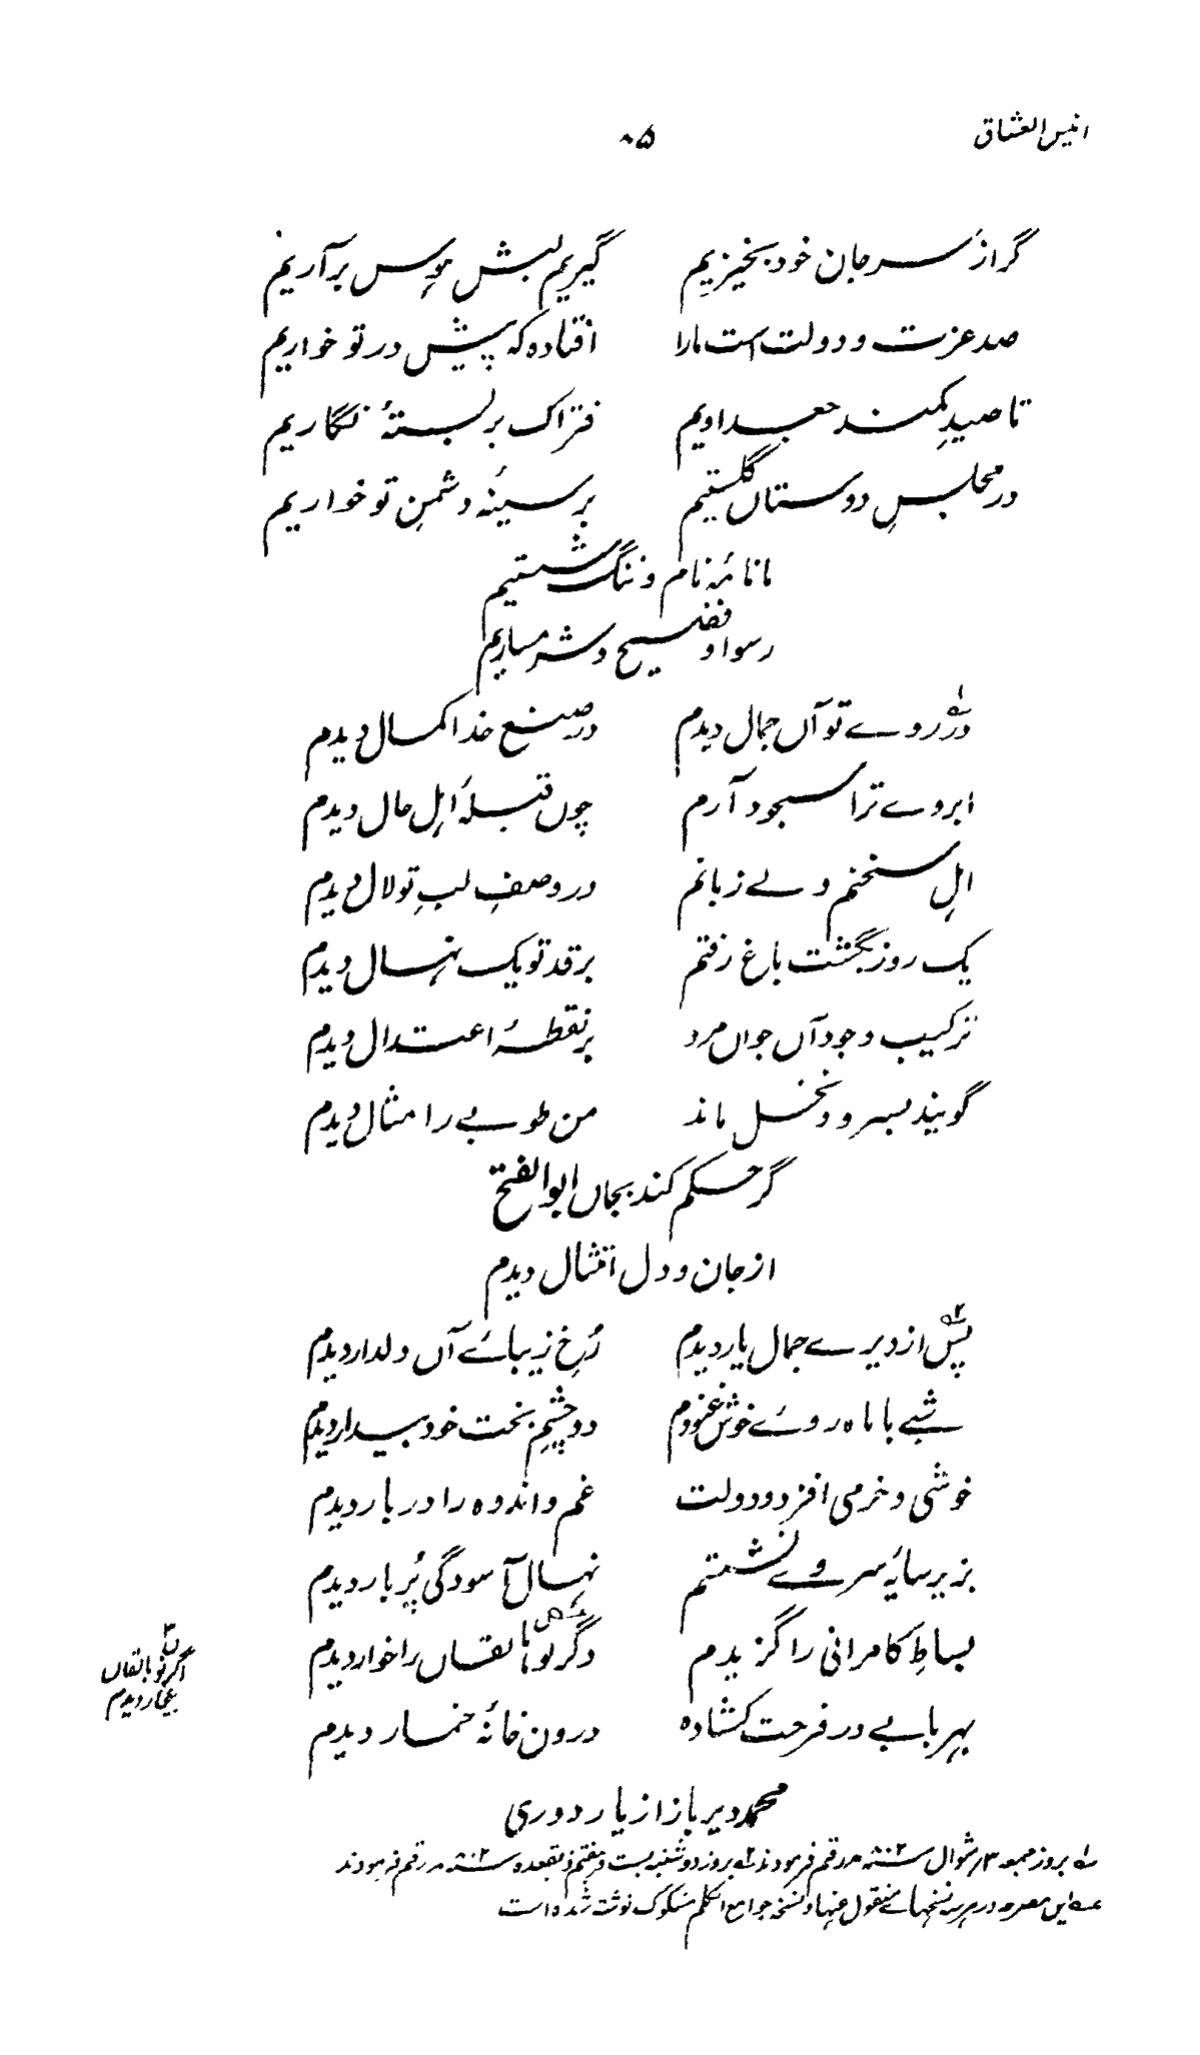 انیس العشاق ۸۵
گر از سر جان خود بخیزیم گیریم لبش ہوس برآریم
صد عزت و دولت است مارا افتادہ کہ پیش در تو خواریم
تا صیدِ کمند جعد اویم فتراک بر بستۂ نگاریم
در مجلسِ دوستاں گلستیم بر سینۂ دشمنِ تو خواریم
ما نامۂ نام و ننگ شستیم
رسوا و فضیح و شرمساریم
در روے تو آں جمال دیدم در صنع خدا کمال دیدم
ابروے ترا سجود آرم چوں قبلۂ اہل حال دیدم
اہلِ سخنم و لے زبانم در وصفِ لبِ تو لال دیدم
یک روز بگشت باغ رفتم بر قد تو یک نہال دیدم
ترکیب وجود آں جواں مرد بر نقطۂ اعتدال دیدم
گویند بسرو و نخل ماند من طوبے را مثال دیدم
گر حکم کند بجاں ابوالفتح
از جان و دل امتثال دیدم
پس از دیرے جمال یار دیدم رُخِ زیبائے آں دلدار دیدم
شبے با ماہ روئے خوش غنودم دو چشمِ بخت خود بیدار دیدم
خوشی و خرمی افزود دولت غم و اندوہ را در بار دیدم
بزیر سایۂ سروے نشستم نہال آسودگی پُر بار دیدم
بساطِ کامرانی را گزیدم دگر نوبا لقاں را خوار دیدم
بہر بابے در فرحت کشادہ درون خانۂ خمار دیدم
محمد دیر باز از یار دوری
لہ بروز جمعہ ۱۳؍ شوال سنہ ۸۰۲ھ رقم فرمودند ۲ بروز دوشنبہ بست و ہفتم ذیقعدہ سنہ ۸۰۲ھ رقم فرمودند
این مصرعہ در ہر سہ نسخہائے منقول عنہا و نسخہ جوامع الکلم مشکوک نوشتہ شدہ است